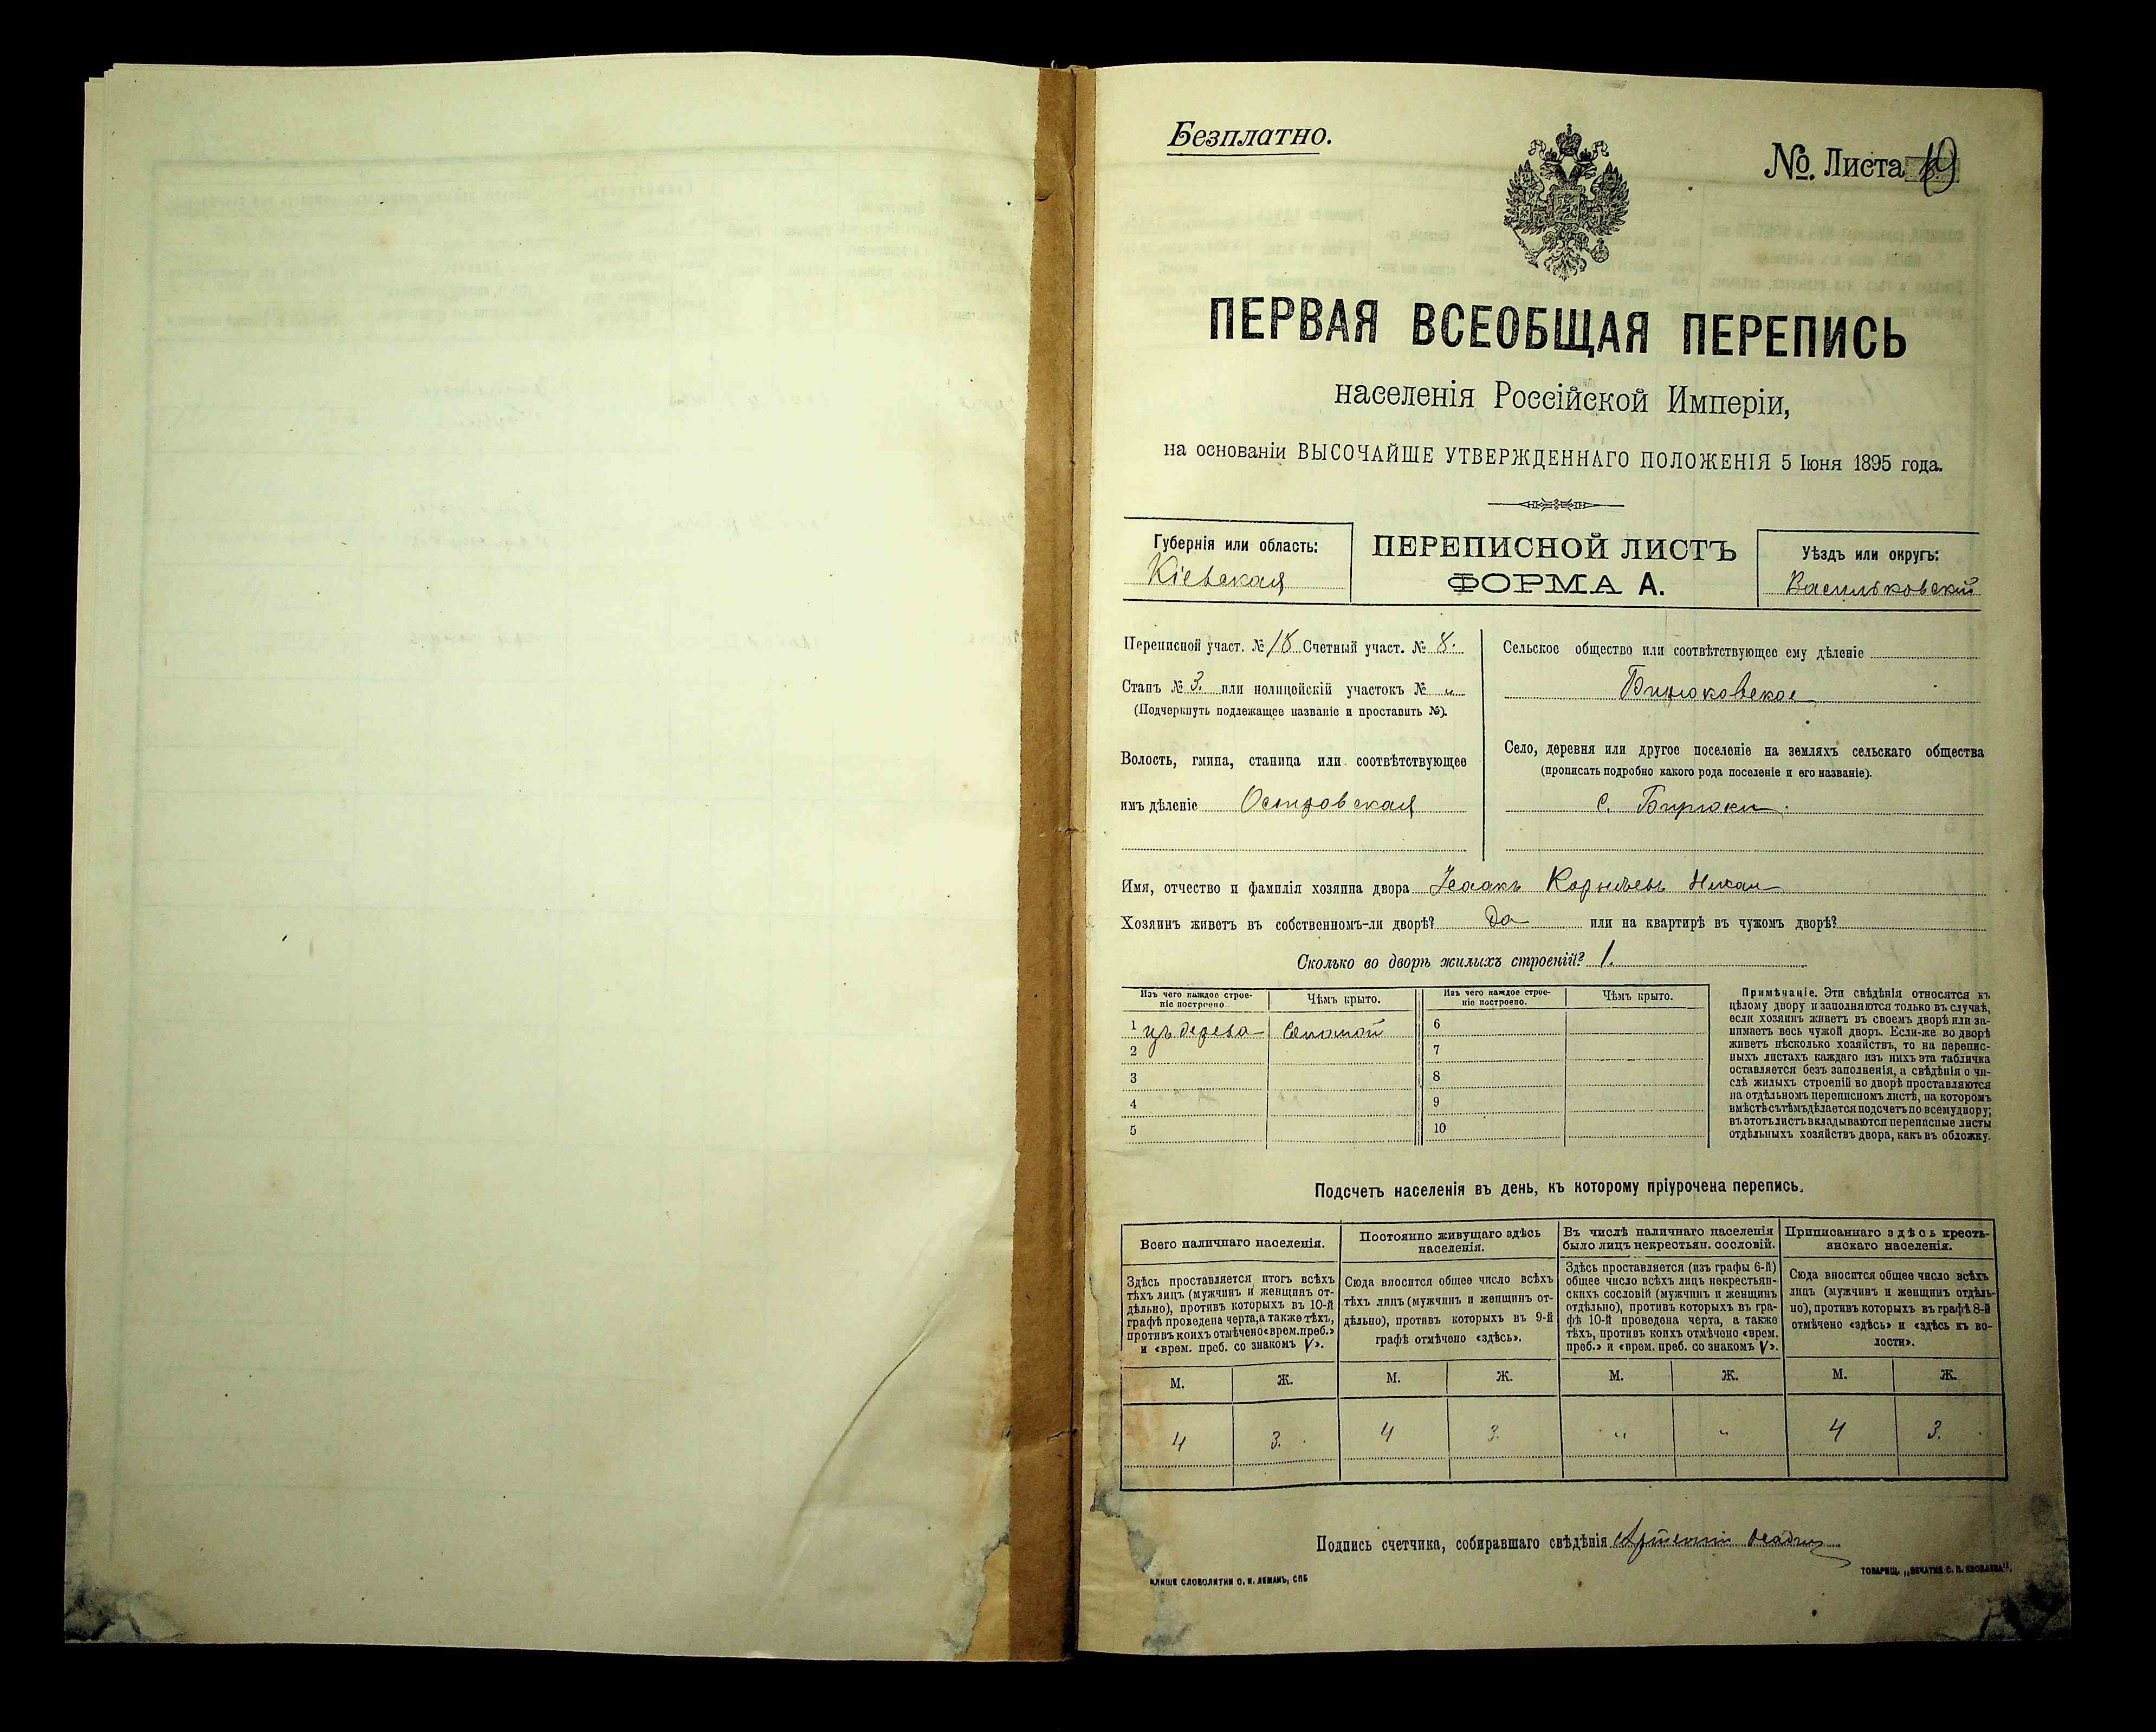 Безплатно.
№. Листа
ПЕРВАЯ ВСЕОБЩАЯ ПЕРЕПИСЬ
населенія Россійской Имперіи,
на основаніи ВЫСОЧАЙШЕ УТВЕРЖДЕННАГО ПОЛОЖЕНІЯ 5 Іюня 1895 года.
Губернія или область:
Кіевская
ПЕРЕПИСНОЙ ЛИСТЪ
ФОРМА А.
Уѣздъ или округъ:
Васильковскій
Переписной участ. № 18 Счетный участ. № 8.
Станъ № 3. или полицейскій участокъ № „
(Подчеркнуть подлежащее названіе и проставить №).
Волость, гмина, станица или соотвѣтствующее
имъ дѣленіе
Сельское общество или соотвѣтствующее ему дѣленіе
Бирюковское
Село, деревня или другое поселеніе на земляхъ сельскаго общества
(прописать подробно какого рода поселеніе и его названіе).
с. Бирюки.
Имя, отчество и фамилія хозяина двора Исаакъ Корнѣевъ
Хозяинъ живетъ въ собственномъ-ли дворѣ? Да или на квартирѣ въ чужомъ дворѣ?
Сколько во дворѣ жилыхъ строеній? 1.
Изъ чего каждое строе-
ніе построено.
Чѣмъ крыто.
Изъ чего каждое строе-
ніе построено.
Чѣмъ крыто.
1 изъ дерева Соломой 6
2 7
3 8
4 9
5 10
Примѣчаніе. Эти свѣдѣнія относятся къ
цѣлому двору и заполняются только въ случаѣ,
если хозяинъ живетъ въ своемъ дворѣ или за-
нимаетъ весь чужой дворъ. Если-же во дворѣ
живетъ нѣсколько хозяйствъ, то на перепис-
ныхъ листахъ каждаго изъ нихъ эта табличка
оставляется безъ заполненія, а свѣдѣнія о чи-
слѣ жилыхъ строеній во дворѣ проставляются
на отдѣльномъ переписномъ листѣ, на которомъ
вмѣстѣ съ тѣмъ дѣлается подсчетъ по всему двору;
въ этотъ листъ вкладываются переписные листы
отдѣльныхъ хозяйствъ двора, какъ въ обложку.
Подсчетъ населенія въ день, къ которому пріурочена перепись.
Всего наличнаго населенія.
Здѣсь проставляется итогъ всѣхъ
тѣхъ лицъ (мужчинъ и женщинъ от-
дѣльно), противъ которыхъ въ 10-й
графѣ проведена черта, а также тѣхъ,
противъ коихъ отмѣчено «врем. преб.»
и «врем. преб. со знакомъ V».
Постоянно живущаго здѣсь
населенія.
Сюда вносится общее число всѣхъ
тѣхъ лицъ (мужчинъ и женщинъ от-
дѣльно), противъ которыхъ въ 9-й
графѣ отмѣчено «здѣсь».
Въ числѣ наличнаго населенія
было лицъ некрестьян. сословій.
Здѣсь проставляется (изъ графы 6-й)
общее число всѣхъ лицъ некрестьян-
скихъ сословій (мужчинъ и женщинъ
отдѣльно), противъ которыхъ въ гра-
фѣ 10-й проведена черта, а также
тѣхъ, противъ коихъ отмѣчено «врем.
преб.» и «врем. преб. со знакомъ V».
Приписаннаго здѣсь кресть-
янскаго населенія.
Сюда вносится общее число всѣхъ
лицъ (мужчинъ и женщинъ отдѣль-
но), противъ которыхъ въ графѣ 8-й
отмѣчено «здѣсь» и «здѣсь къ во-
лости».
М. Ж. М. Ж. М. Ж. М. Ж.
4 3. 4 3. „ „ 4 3.
Подпись счетчика, собиравшаго свѣдѣнія
СЛОВОЛИТНИ О. И. ЛЕМАНЪ, СПБ
ТОВАРИЩ. „ПЕЧАТНЯ С. П. ЯКОВЛЕВА".